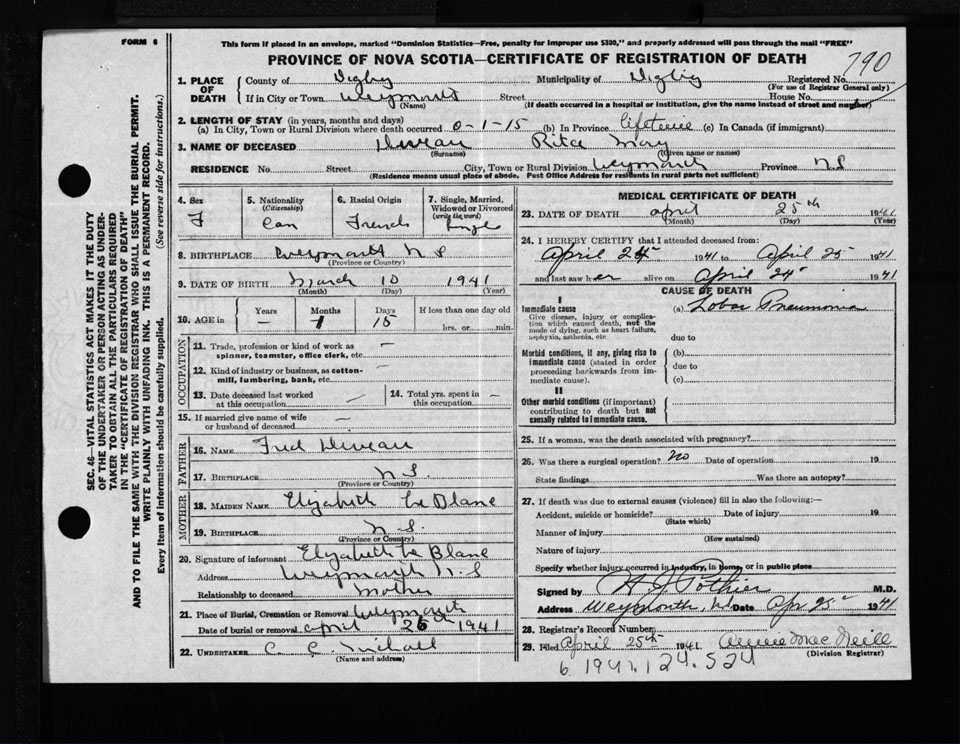 FORM 6
This form if placed in an envelope, marked "Dominion Statistics—Free, penalty for improper use $300," and properly addressed will pass through the mail "FREE"
PROVINCE OF NOVA SCOTIA—CERTIFICATE OF REGISTRATION OF DEATH
790
1. PLACE OF DEATH County of Digby Municipality of Digby Registered No.
(For use of Registrar General only)
If in City or Town Weymouth Street House No.
(Name) (If death occurred in a hospital or institution, give the name instead of street and number)
2. LENGTH OF STAY (in years, months and days)
(a) In City, Town or Rural Division where death occurred 0-1-15 (b) In Province lifetime (c) In Canada (if immigrant)
3. NAME OF DECEASED Rita May
(Surname) (Given name or names)
RESIDENCE No. Street City, Town or Rural Division Weymouth Province N.S
(Residence means usual place of abode. Post Office Address for residents in rural parts not sufficient)
4. Sex F
5. Nationality (Citizenship) Can
6. Racial Origin French
7. Single, Married, Widowed or Divorced (write the word) Single
8. BIRTHPLACE Weymouth N S
(Province or Country)
9. DATE OF BIRTH March 10 1941
(Month) (Day) (Year)
10. AGE in Years — Months 1 Days 15 If less than one day old hrs. or min.
OCCUPATION
11. Trade, profession or kind of work as spinner, teamster, office clerk, etc. —
12. Kind of industry or business, as cotton-mill, lumbering, bank, etc. —
13. Date deceased last worked at this occupation — 14. Total yrs. spent in this occupation —
15. If married give name of wife or husband of deceased —
FATHER
16. NAME Fred
17. BIRTHPLACE N S.
(Province or Country)
MOTHER
18. MAIDEN NAME Elizabeth Le Blanc
19. BIRTHPLACE N S.
(Province or Country)
20. Signature of informant Elizabeth Le Blanc
Address Weymouth N.S
Relationship to deceased Mother
21. Place of Burial, Cremation or Removal Weymouth
Date of burial or removal April 26th 1941
22. UNDERTAKER C. C.
(Name and address)
MEDICAL CERTIFICATE OF DEATH
23. DATE OF DEATH April 25th 1941
(Month) (Day) (Year)
24. I HEREBY CERTIFY that I attended deceased from:
April 24 1941 to April 25 1941
and last saw her alive on April 24 1941
CAUSE OF DEATH
I
Immediate cause (a) Lobar Pneumonia
Give disease, injury or complication which caused death, not the mode of dying, such as heart failure, asphyxia, asthenia, etc due to
Morbid conditions, if any, giving rise to immediate cause (stated in order proceeding backwards from immediate cause). (b)
due to
(c)
II
Other morbid conditions (if important) contributing to death but not causally related to immediate cause.
25. If a woman, was the death associated with pregnancy?
26. Was there a surgical operation? No Date of operation 19
State findings Was there an autopsy?
27. If death was due to external causes (violence) fill in also the following:—
Accident, suicide or homicide? Date of injury 19
(State which)
Manner of injury
(How sustained)
Nature of injury
Specify whether injury occurred in industry, in home, or in public place
Signed by Pothier M.D.
Address Weymouth Date Apr 25 1941
28. Registrar's Record Number
29. Filed April 25th 1941. Annie MacNeill
(Division Registrar)
6 1941.124.524
SEC. 46—VITAL STATISTICS ACT MAKES IT THE DUTY
OF THE UNDERTAKER OR PERSON ACTING AS UNDER-
TAKER TO OBTAIN ALL THE PARTICULARS REQUIRED
IN THE "CERTIFICATE OF REGISTRATION OF DEATH"
AND TO FILE THE SAME WITH THE DIVISION REGISTRAR WHO SHALL ISSUE THE BURIAL PERMIT.
WRITE PLAINLY WITH UNFADING INK. THIS IS A PERMANENT RECORD.
Every item of information should be carefully supplied. (See reverse side for instructions.)